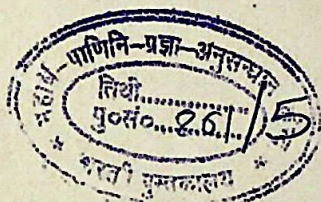 महर्षि-पाणिनि-प्रज्ञा-अनुसन्धान
तिथी..............
पु०सं०... 861/5
* भारती पुस्तकालय *